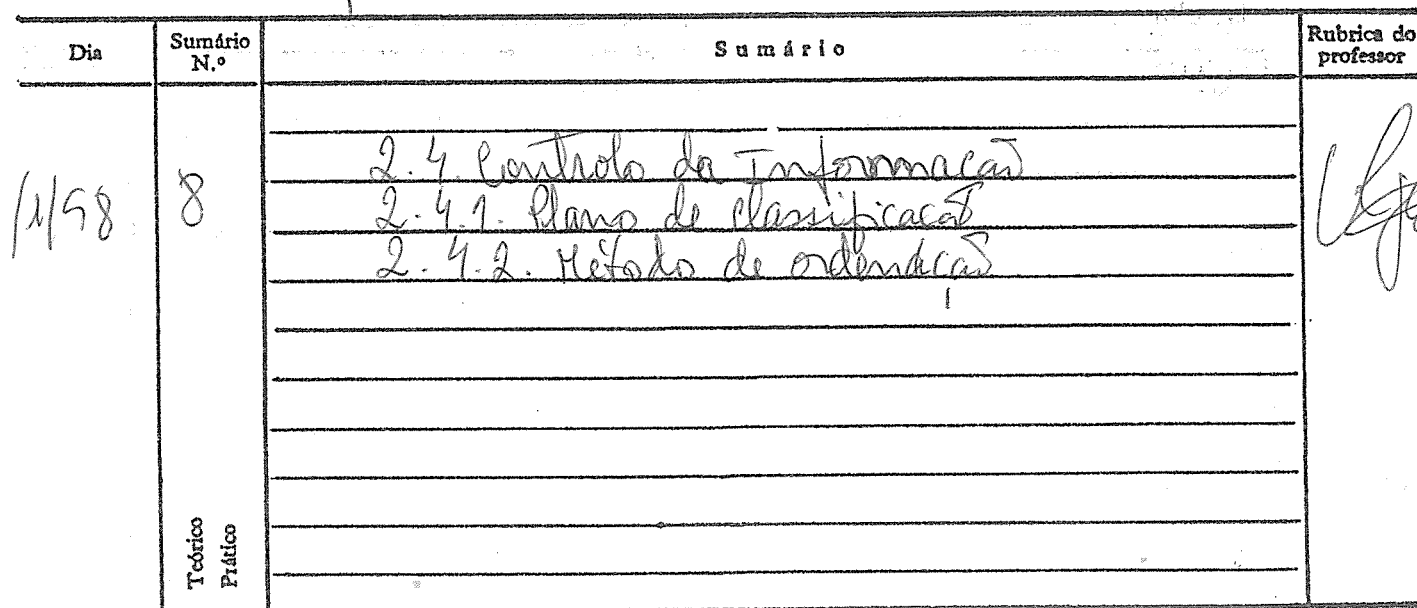 Dia
Sumário N.º
Sumário
Rubrica do professor
/1/98
8
2.4. Controlo da Informação
2.4.1. Plano de classificação
2.4.2. Método de ordenação
Teórico
Prático